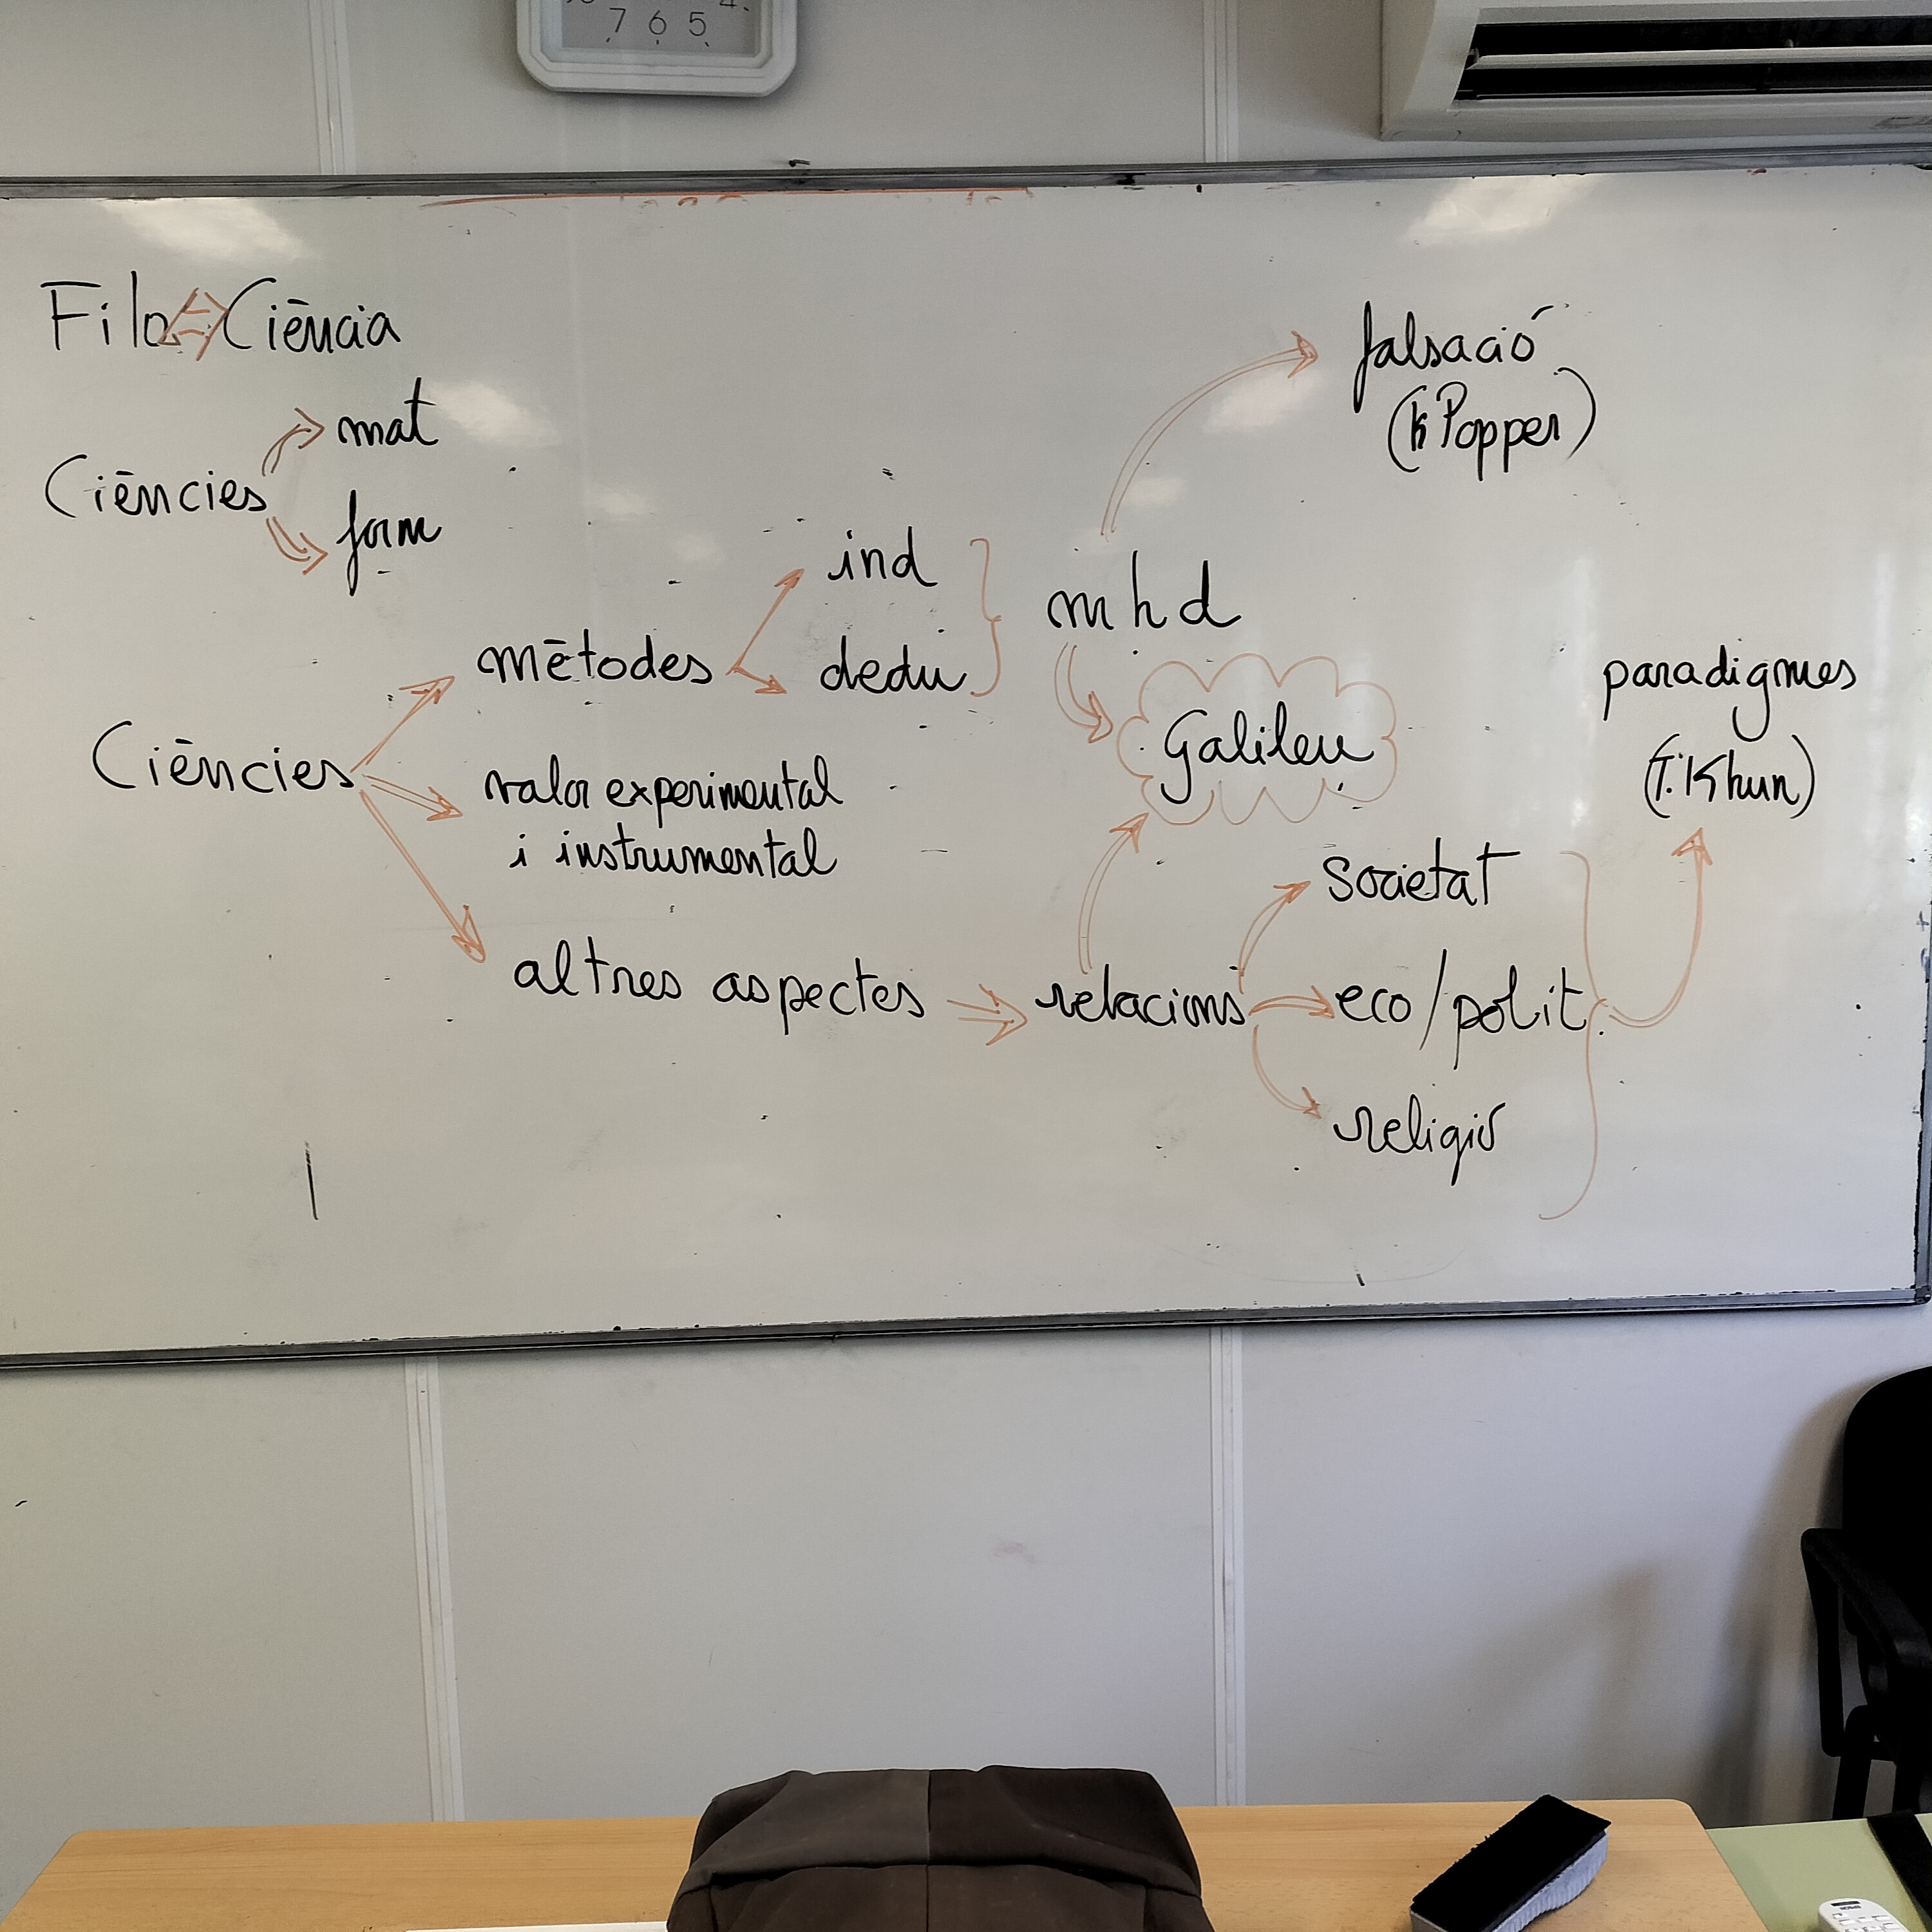 7 6 5
Filo Ciència
Ciències
mat
form
Ciències
mètodes
ind
dedu
m h d
falsació
(K Popper)
Galileu
valor experimental
i instrumental
altres aspectes
relacions
societat
eco/polit.
religió
paradigmes
(T. Khun)